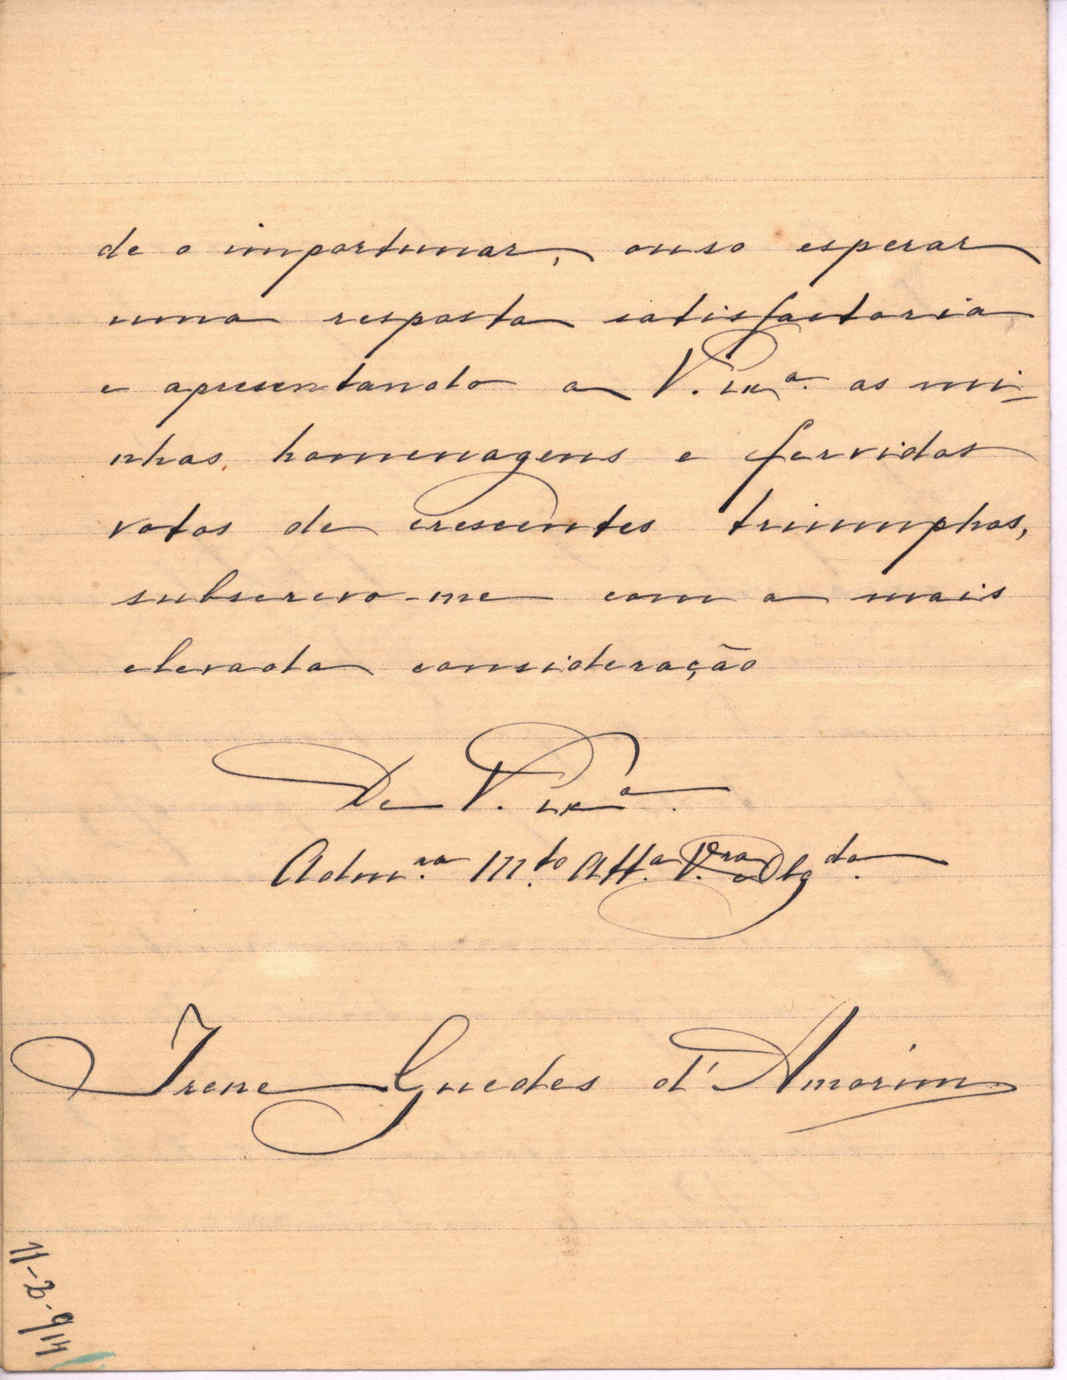 de o importunar, ouso esperar
uma resposta satisfactoria
e apresentando a V. Exª. as mi-
nhas homenagens e fervidos
votos de crescentes triumphos,
subscrevo-me com a mais
elevada consideração
De V. Exª.
Admʳᵃ. Mᵗᵒ. Attª. Vʳᵃ. e Obgᵈᵃ.
Irene Guedes d'Amorim
11-2-914